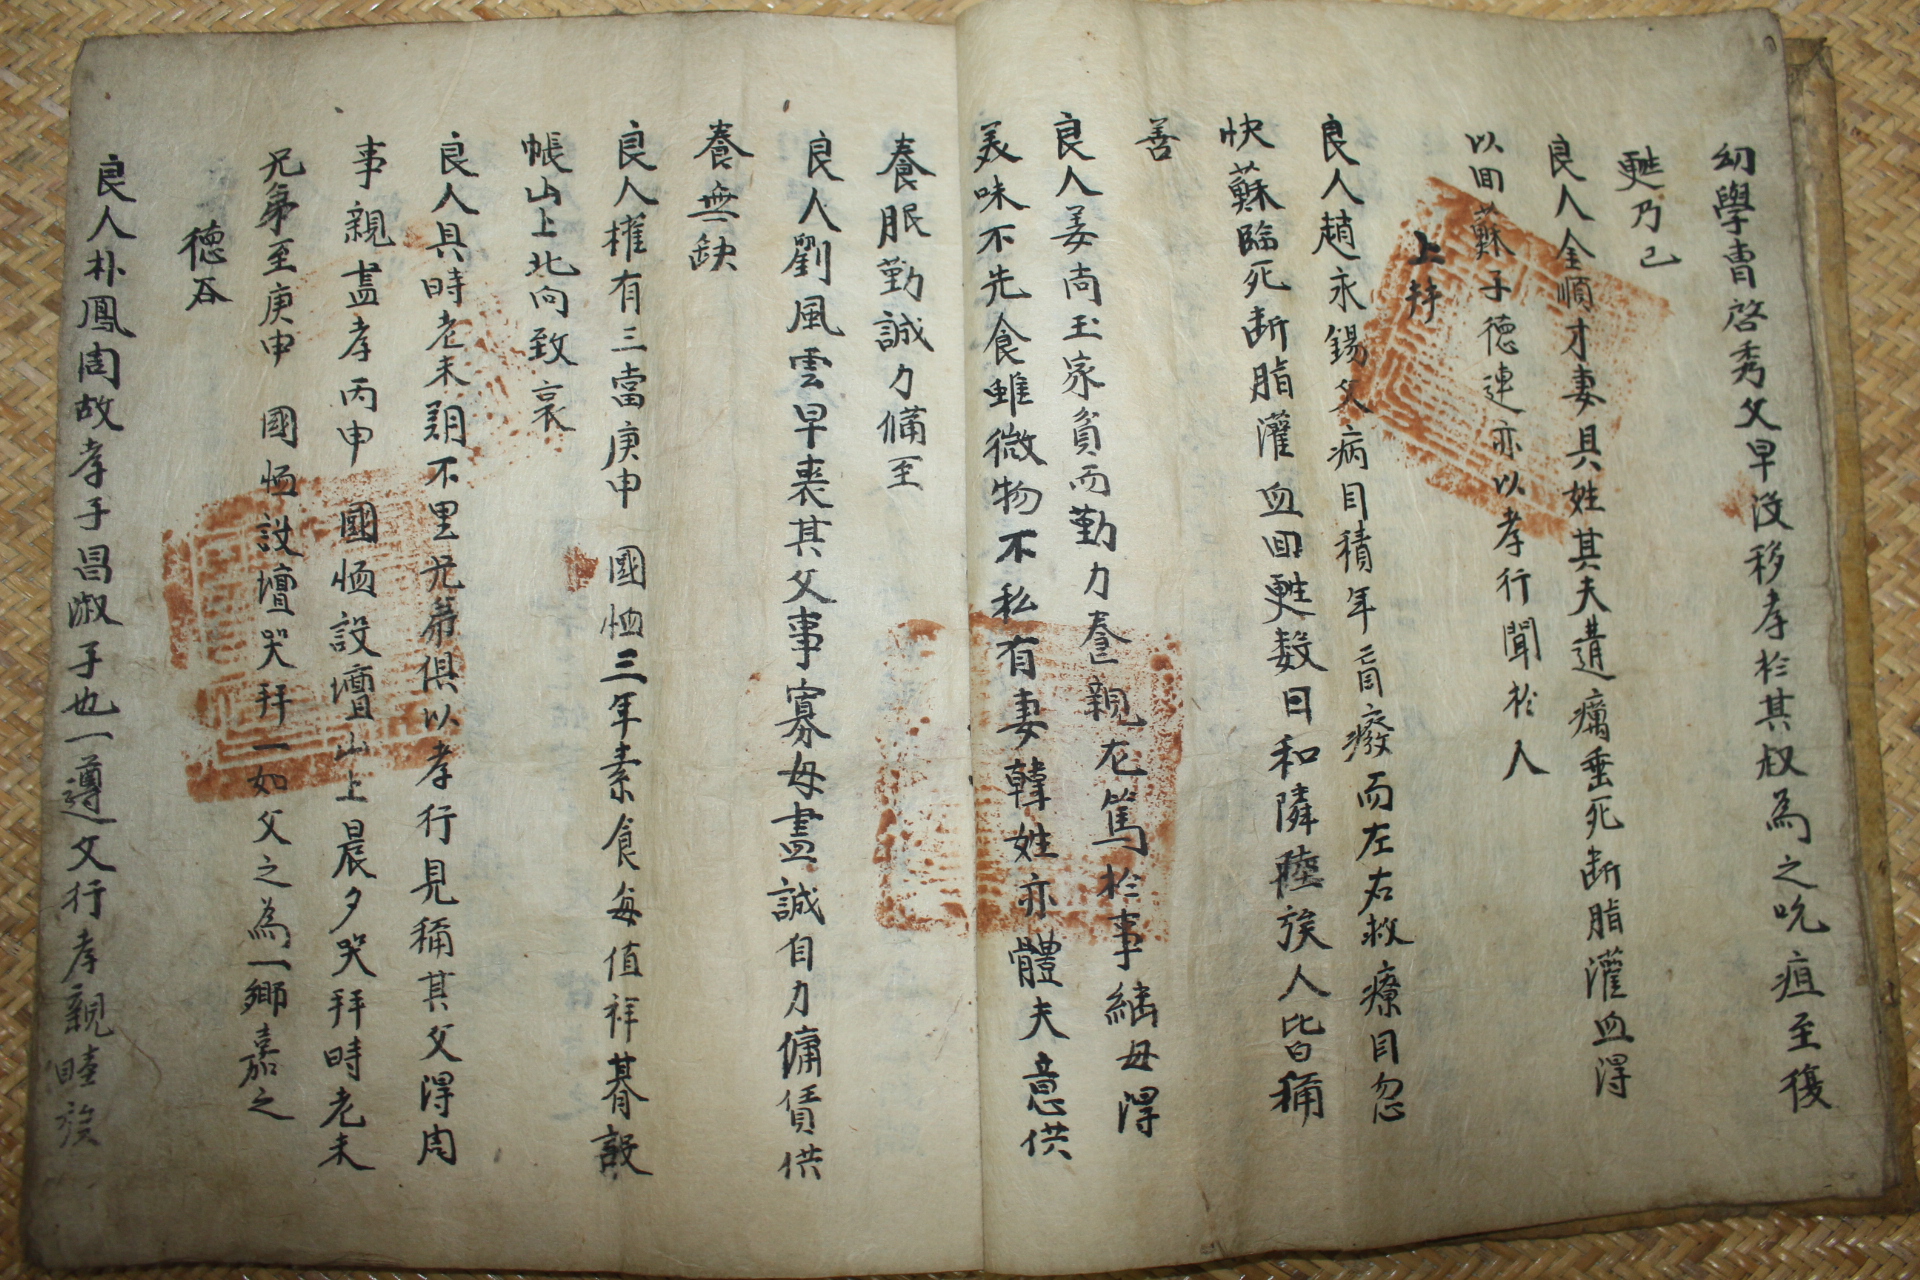 幼學曺啓秀父早沒移孝於其叔為之吮疽至復
甦乃已
良人金順才妻具姓其夫遘癘垂死断脂灌血得
以回蘇子德連亦以孝行聞於人
上拜
良人趙永錫父病目積年盲廢而左右救療目忽
快蘇臨死断脂灌血回甦数日和隣睦族人皆稱
善
良人姜尚玉家貧而勤力養親尤篤於事継母得
美味不先食雖微物不私有妻韓姓亦體夫意供
養服勤誠力備至
良人劉風雲早喪其父事寡母盡誠自力傭賃供
養無缺
良人權有三當庚申 國恤三年素食每值祥朞設
帳山上北向致哀
良人具時老未朗不里兄弟俱以孝行見稱其父得周
事親盡孝丙申 國恤設壇山上晨夕哭拜時老未
兄弟至庚申 國恤設壇哭拜一如父之為一鄉嘉之
德谷
良人朴鳳周故孝子昌淑子也一遵父行孝親睦族